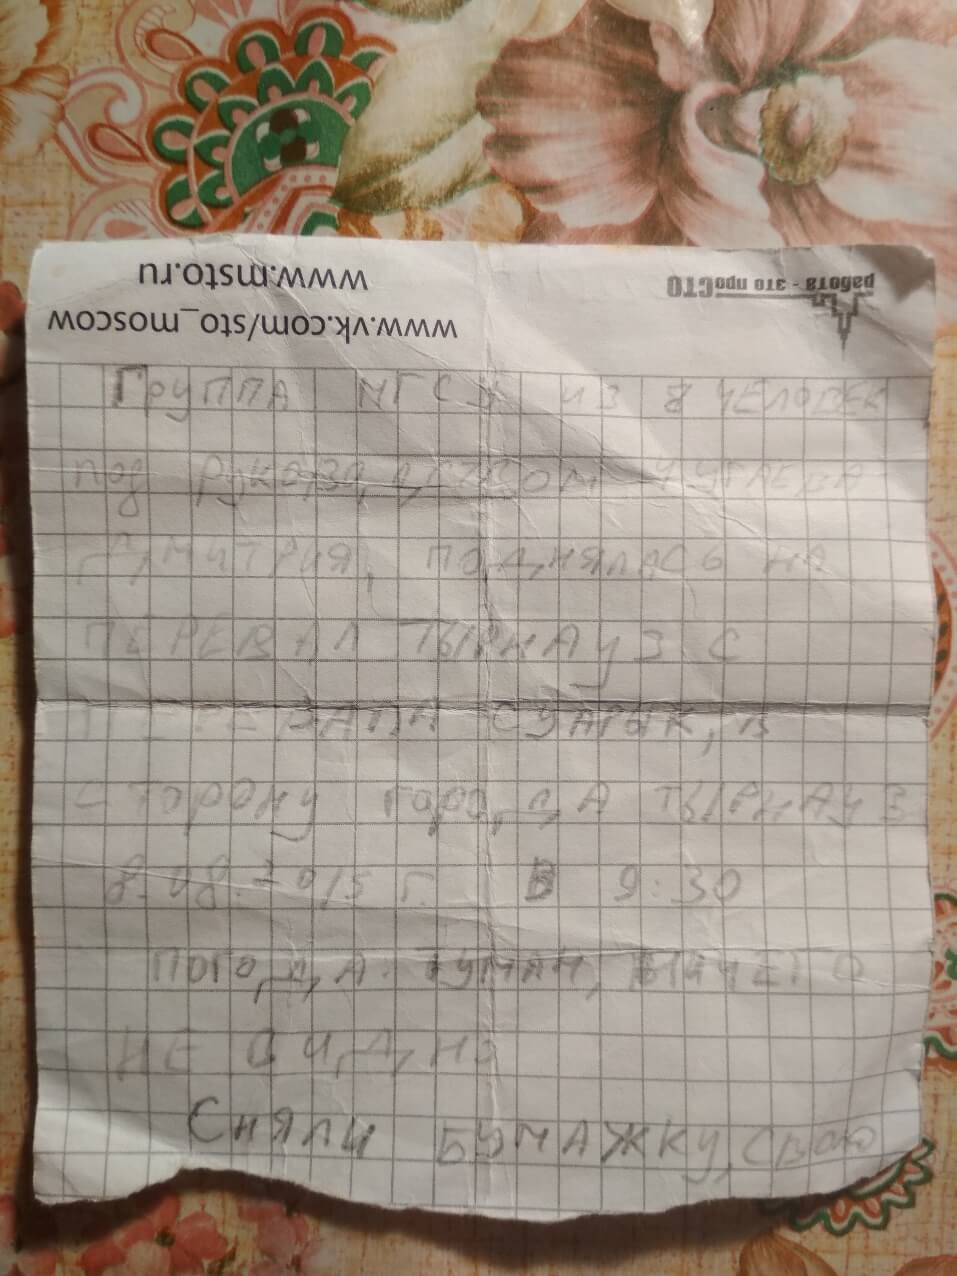 www.msto.ru
работа - это проСТО
www.vk.com/sto_moscow
Группа МГСУ из 8 человек
под руководством Чугаева
Дмитрия, поднялась на
перевал Тырныауз с
перевала Сударык, в
сторону города Тырныауз
8.08.2015 г. в 9:30
Погода: туман, ничего
не видно
Сняли бумажку, свою